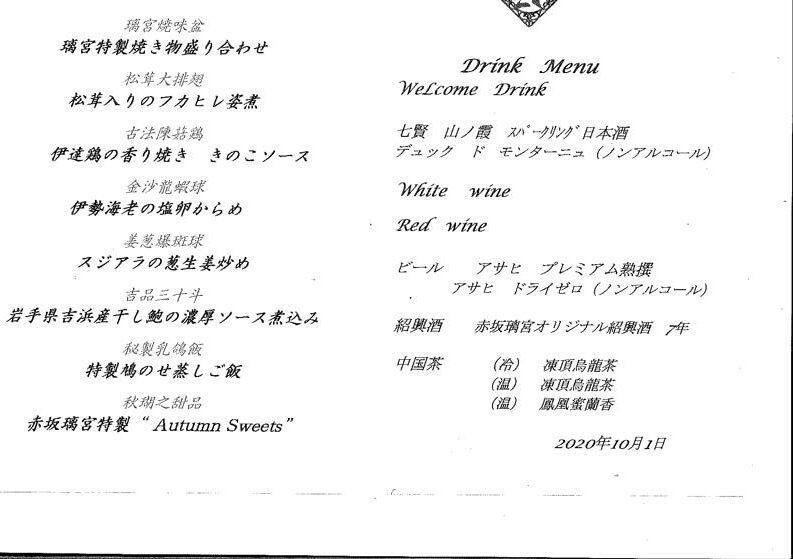 璃宮焼味盆
璃宮特製焼き物盛り合わせ
松茸大排翅
松茸入りのフカヒレ姿煮
古法陳菇鶏
伊達鶏の香り焼き　きのこソース
金沙龍蝦球
伊勢海老の塩卵からめ
姜葱爆斑球
スジアラの葱生姜炒め
吉品三十斗
岩手県吉浜産干し鮑の濃厚ソース煮込み
秘製乳鴿飯
特製鳩のせ蒸しご飯
秋瑚之甜品
赤坂璃宮特製 “ Autumn Sweets”
Drink Menu
WeLcome Drink
七賢　山ノ霞　ｽﾊﾟｰｸﾘﾝｸﾞ日本酒
デュック　ド　モンターニュ（ノンアルコール）
White wine
Red wine
ビール　　アサヒ　プレミアム熟撰
アサヒ　ドライゼロ（ノンアルコール）
紹興酒　　赤坂璃宮オリジナル紹興酒　7年
中国茶　　（冷）　凍頂烏龍茶
（温）　凍頂烏龍茶
（温）　鳳凰蜜蘭香
2020年10月1日